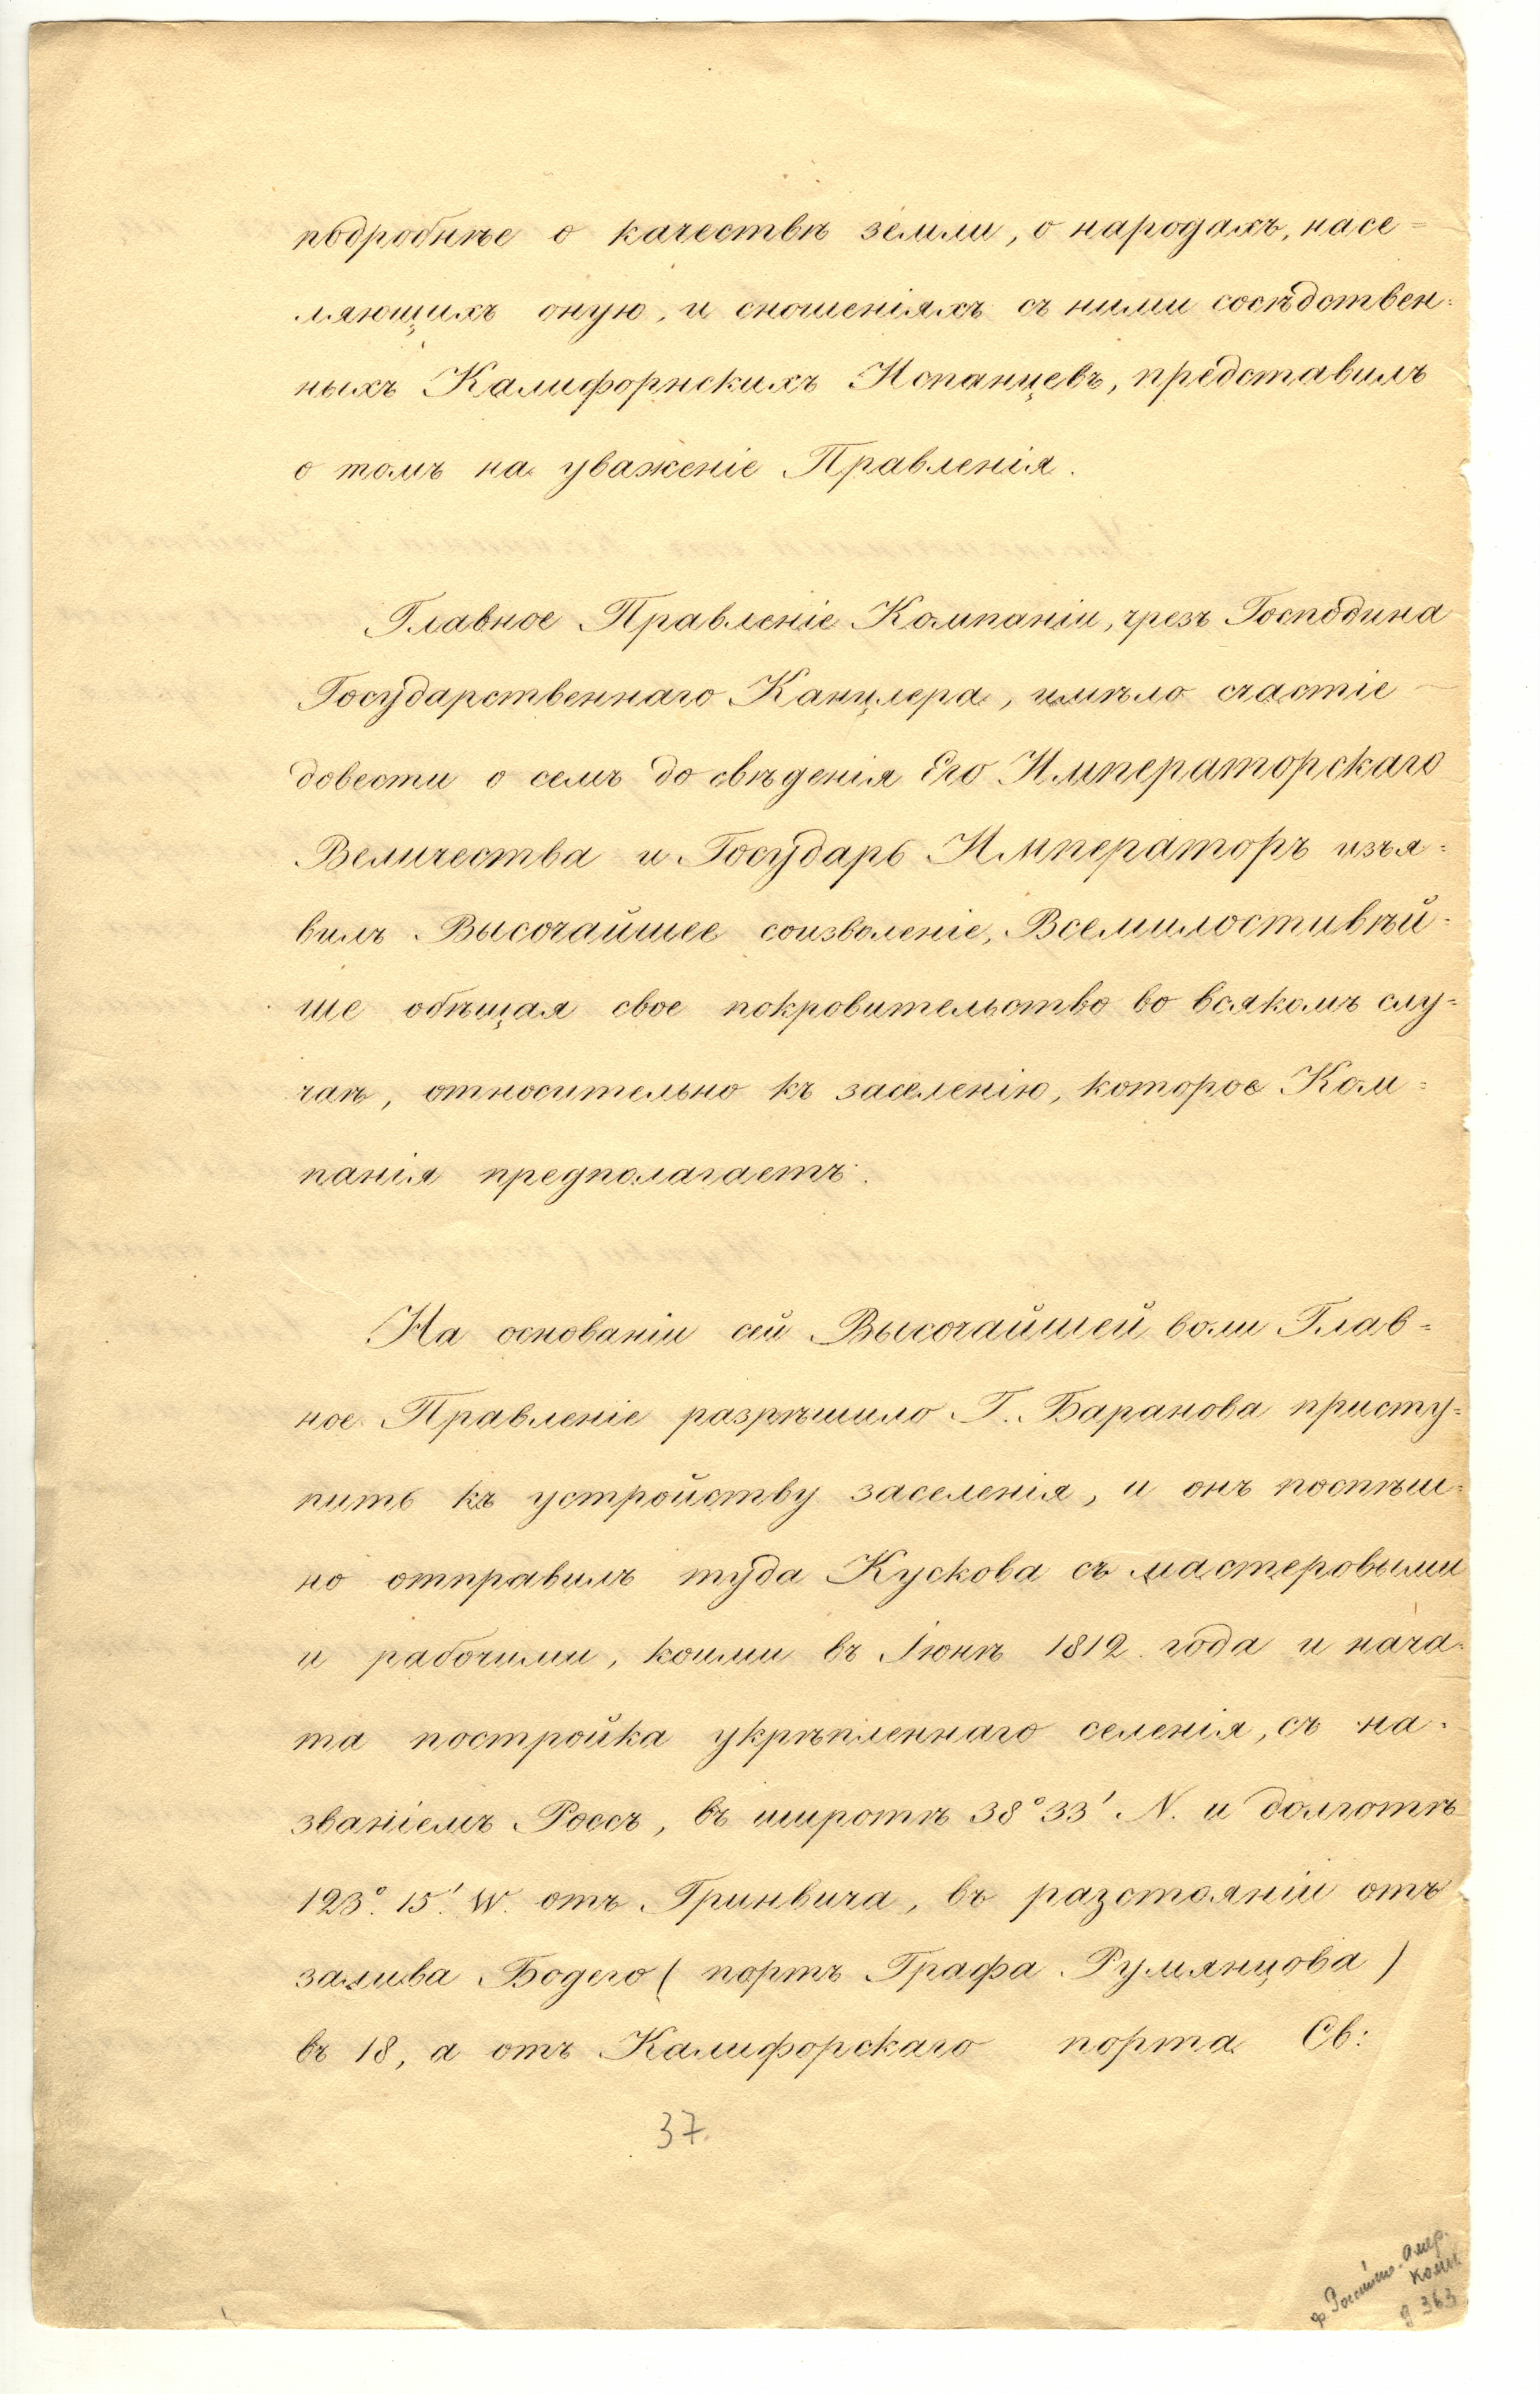 подробнѣе о качествѣ земли, о народахъ, насе=
ляющихъ оную, и сношеніяхъ съ ними сосѣдствен=
ныхъ Калифорнскихъ Испанцевъ, представилъ
о томъ на уваженіе Правленія.
Главное Правленіе Компаніи, чрезъ Господина
Государственнаго Канцлера, имѣло счастіе
довести о семъ до свѣденія Его Императорскаго
Величества и Государь Императоръ изъя=
вилъ Высочайшее соизволеніе, Всемилостивѣй=
ше обѣщая свое покровительство во всякомъ слу=
чаѣ, относительно къ заселенію, которое Ком=
панія предполагаетъ.
На основаніи сей Высочайшей воли Глав=
ное Правленіе разрѣшило Г. Баранова присту=
пить къ устройству заселенія, и онъ поспѣш=
но отправилъ туда Кускова съ мастеровыми
и рабочими, коими въ Іюнѣ 1812 года и нача=
та постройка укрѣпленнаго селенія, съ на=
званіемъ Россъ, въ широтѣ 38° 33' N. и долготѣ
123°. 15'. W. отъ Гринвича, въ разстояніи отъ
залива Бодего (портъ Графа Румянцова)
въ 18, а отъ Калифорскаго порта Св:
37.
ф. Россійско-Амер.
комп
д 363